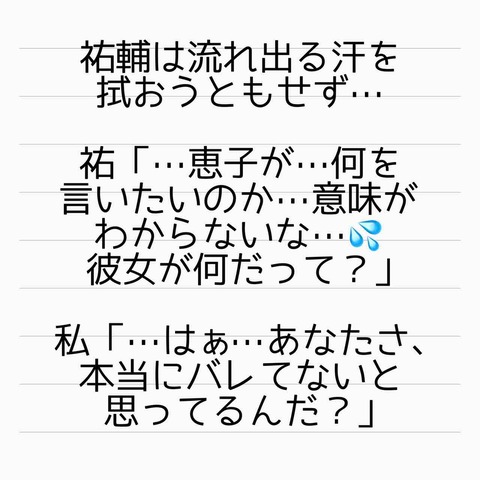 祐輔は流れ出る汗を
拭おうともせず…
祐「…恵子が…何を
言いたいのか…意味が
わからないな…💦
彼女が何だって？」
私「…はぁ…あなたさ、
本当にバレてないと
思ってるんだ？」